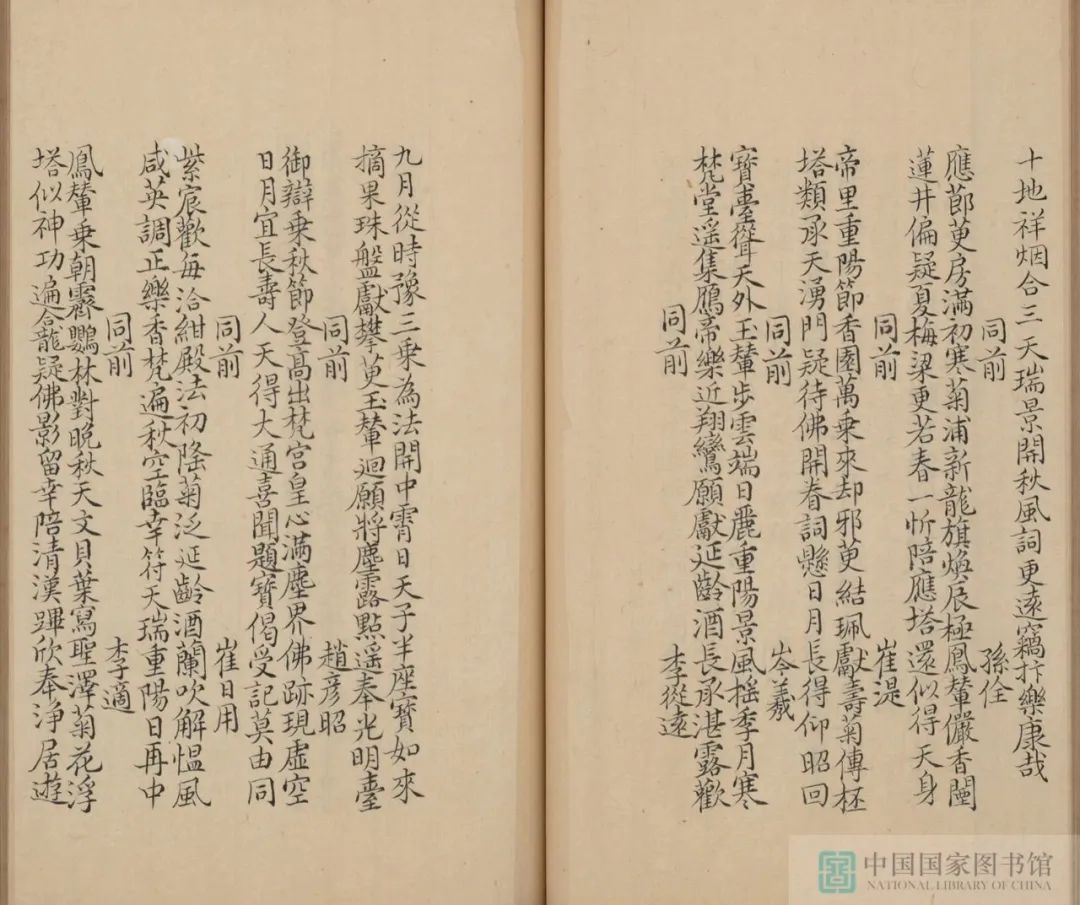 十地祥烟合三天瑞景開秋風詞更遠竊抃樂康哉
同前 孫佺
應節萸房滿初寒菊浦新龍旗煥辰極鳳輦儼香闉
蓮井偏疑夏梅梁更若春一忻陪應塔還似得天身
同前 崔湜
帝里重陽節香園萬乗來却邪萸結珮獻壽菊傳杯
塔類承天湧門疑待佛開眷詞懸日月長得仰昭回
同前 岑羲
寶臺聳天外玉輦步雲端日麗重陽景風揺季月寒
梵堂遥集鴈帝樂近翔鸞願獻延齡酒長承湛露歡
同前 李從遠
九月從時豫三乗為法開中霄日天子半座寶如來
摘果珠盤獻攀萸玉輦迴願將塵露點遥奉光明臺
同前 趙彦昭
御辯乗秋節登髙出梵宫皇心滿塵界佛跡現虚空
日月宜長壽人天得大通喜聞題寶偈受記莫由同
同前 崔日用
紫宸歡每洽紺殿法初隆菊泛延齡酒蘭吹解愠風
咸英調正樂香梵遍秋空臨幸符天瑞重陽日再中
同前 李適
鳳輦乗朝霽鸚林對晩秋天文貝葉寫聖澤菊花浮
塔似神功遍龕疑佛影留幸陪清漢蹕欣奉浄居遊
中国国家图书馆
NATIONAL LIBRARY OF CHINA